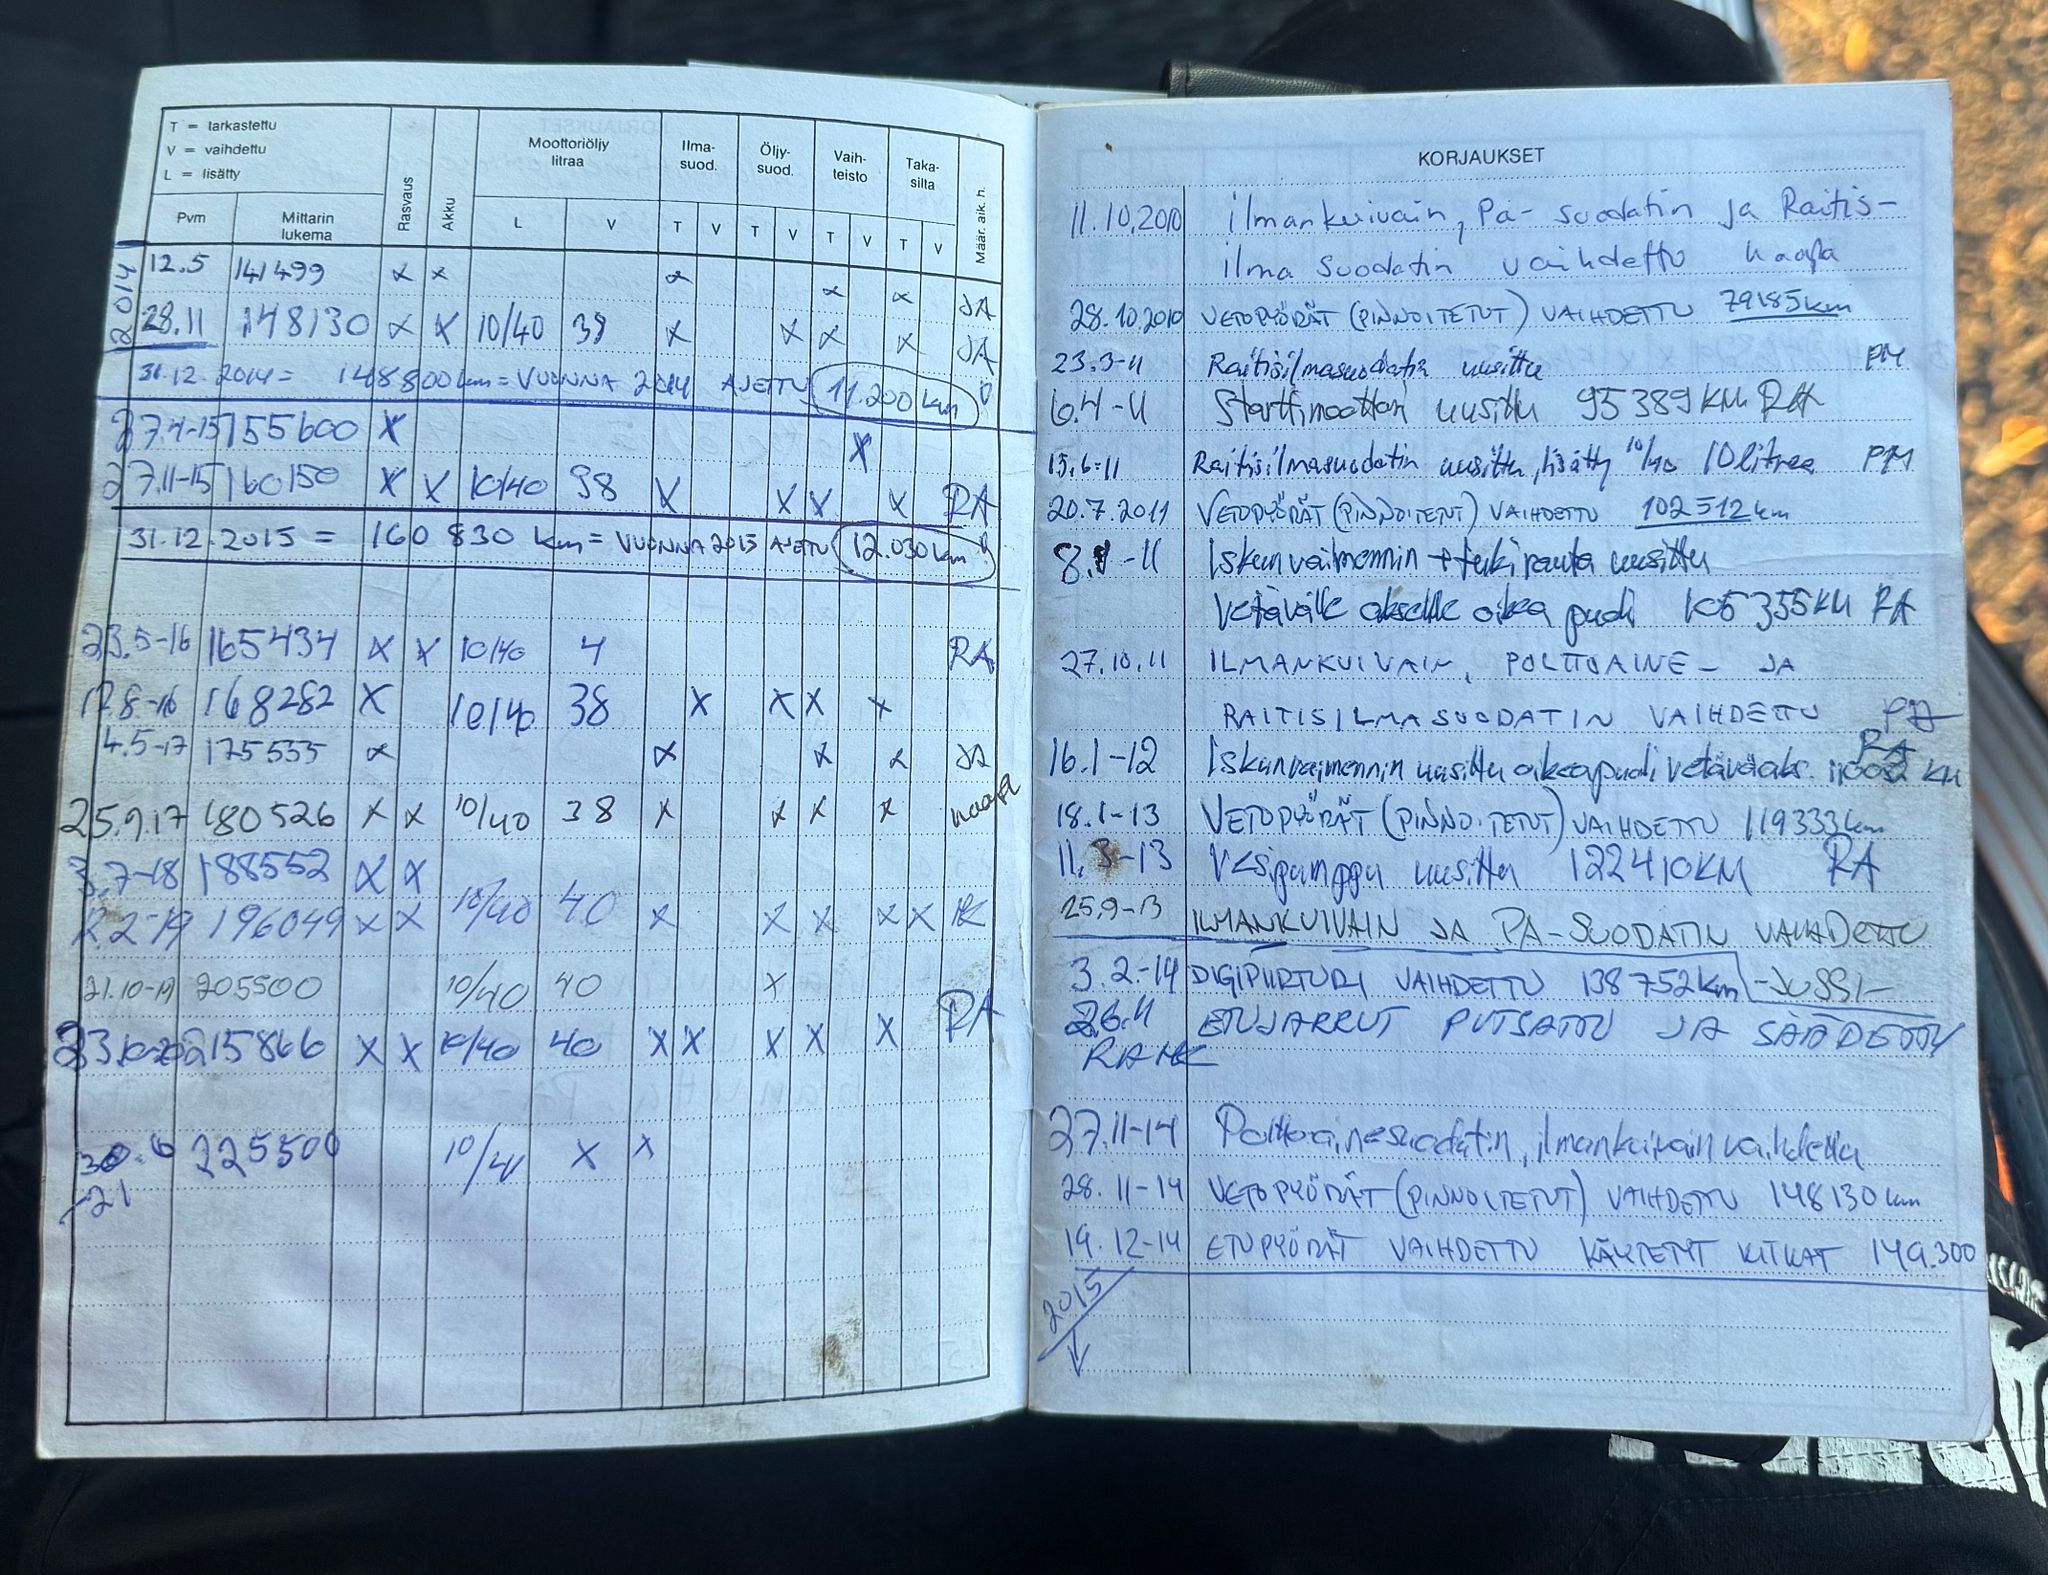 T = tarkastettu
V = vaihdettu
L = lisätty
Pvm Mittarin lukema Rasvaus Akku Moottoriöljy litraa L V Ilma-suod. T V Öljy-suod. T V Vaih-teisto T V Taka-silta T V Määr. aik. h.
2014
12.5 141499 x x x x x JA
28.11 148130 x x 10/40 38 x x x x JA
31.12.2014 = 148800 km = VUONNA 2014 AJETTU 11.200 km
27.4-15 155600 x x
27.11-15 160150 x x 10/40 38 x x x x RA
31.12.2015 = 160 830 km = VUONNA 2015 AJETTU 12.030 km
23.5-16 165434 x x 10/40 4 RA
17.8-16 168282 x 10/40 38 x x x x
4.5-17 175555 x x x x JA
25.9.17 180526 x x 10/40 38 x x x x
3.7-18 188552 x x
12.2-19 196049 x x 10/40 40 x x x x x
21.10-19 205500 10/40 40 x
23.10-20 215866 x x 10/40 40 x x x x x RA
30.6 225500 10/40 x x
-21
KORJAUKSET
11.10.2010 ilmankuivain, Pa- suodatin ja Raitis-
ilma suodatin vaihdettu
28.10.2010 VETOPYÖRÄT (PINNOITETUT) VAIHDETTU 79185km
23.3-11 Raitisilmasuodatin uusittu PM
6.4-11 Starttimoottori uusittu 95389KM RA
15.6-11 Raitisilmasuodatin uusittu, lisätty 10/40 10 litraa PM
20.7.2011 VETOPYÖRÄT (PINNOITETUT) VAIHDETTU 102512km
-11 Iskunvaimennin + tukirauta uusittu
vetävälle akselille oikea puoli 105355KM RA
27.10.11 ILMANKUIVAIN, POLTTOAINE- JA
RAITISILMASUODATIN VAIHDETTU
16.1-12 Iskunvaimennin uusittu oikeapuoli vetäväaks. KM RA
18.1-13 VETOPYÖRÄT (PINNOITETUT) VAIHDETTU 119333km
11.3-13 Vesipumppu uusittu 122410KM RA
25.9-13 ILMANKUIVAIN JA PA-SUODATIN VAIHDETTU
3.2-14 DIGIPIIRTURI VAIHDETTU 138752km -JUSSI-
26.11 ETUJARRUT PUTSATTU JA SÄÄDETTY
RA MK
27.11-14 Polttoainesuodatin, ilmankuivain vaihdettu
28.11-14 VETOPYÖRÄT (PINNOITETUT) VAIHDETTU 148130km
19.12-14 ETUPYÖRÄT VAIHDETTU KÄYTETYT KITKAT 149.300
2015